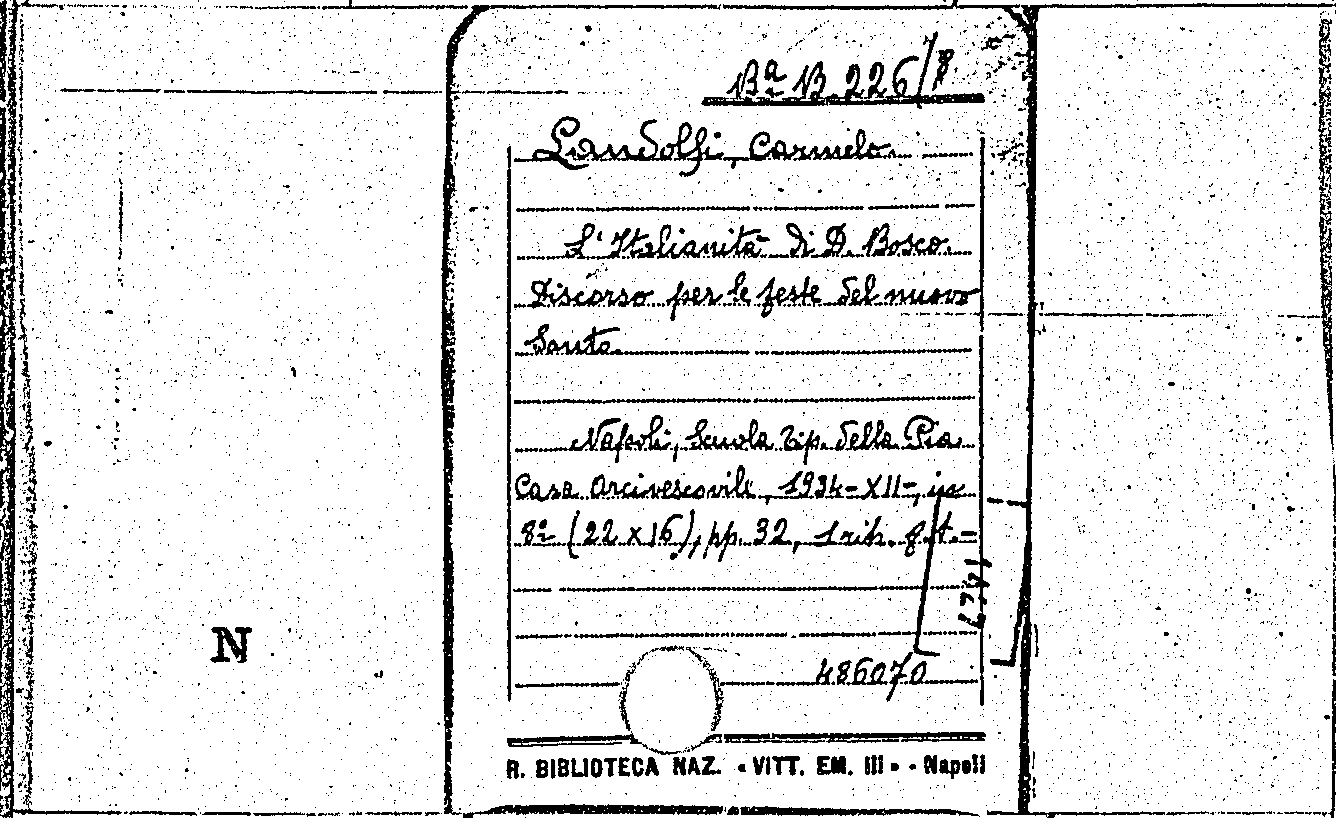 Bª B. 226/8
Landolfi, Carmelo.
L'Italianità di D. Bosco.
Discorso per le feste del nuovo
Santo.
Napoli, Scuola Tip. della Pia
Casa Arcivescovile, 1934-XII-, in
8º (22 x 16), pp. 32, 1 ritr. f.t.-
N
486070
R. BIBLIOTECA NAZ. «VITT. EM. III» - Napoli